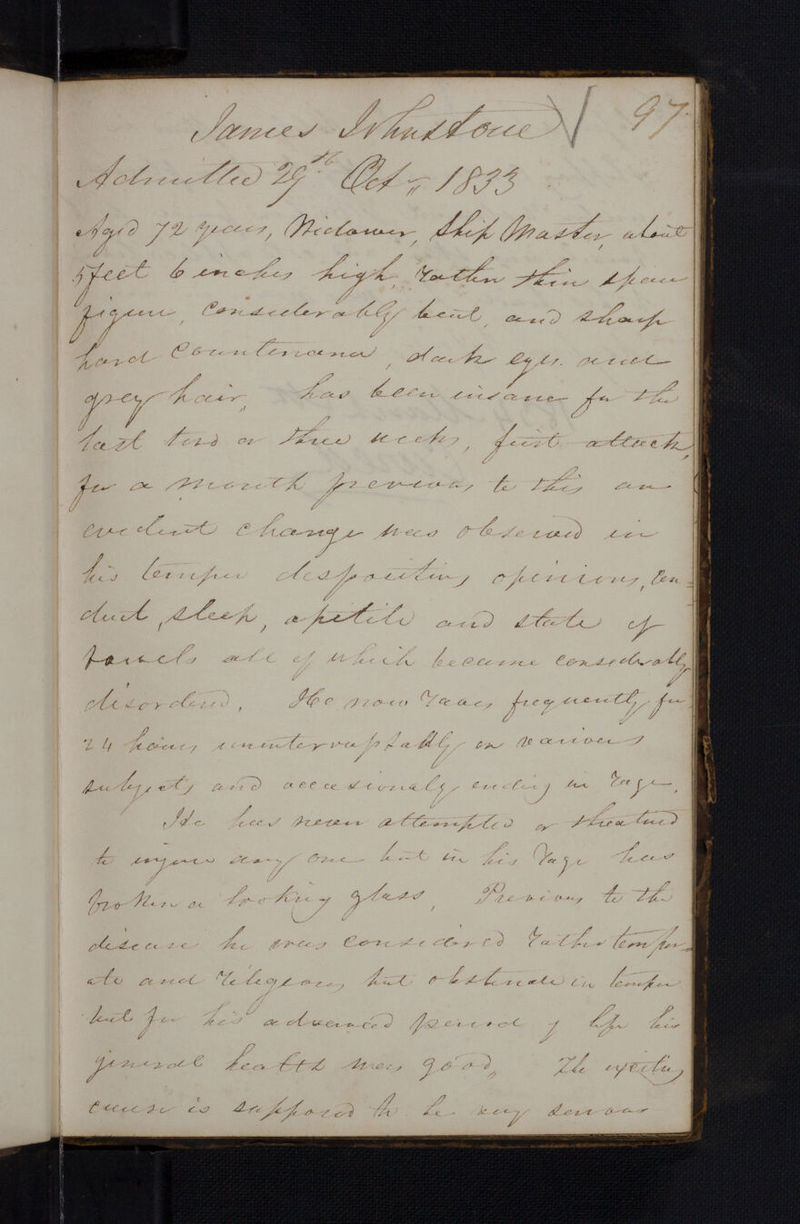 James Johnstone 97
Admitted 29th Oct 1833
Aged 72 years, Widower, Ship Master, about
5 feet 6 inches high, rather thin spare
figure, considerably bent, and sharp
hard countenance, dark eyes and
grey hair, has been insane for the
last two or three weeks, first attack,
for a month previous to this an
evident change was observed in
his temper disposition, opinions, con=
duct, sleep, apetite and state of
bowels all of which became considerably
disordered. He now raves frequently for
24 hours uninterruptably on various
subjects and occasionaly ending in rage.
He has never attempted or threatned
to injure any one but in his rage has
broken a looking glass, Previous to the
disease he was considered rather temper=
ate and religeous, but obstinate in temper
but for his advanced period of life his
general health was good, The exciting
cause is supposed to be very serious